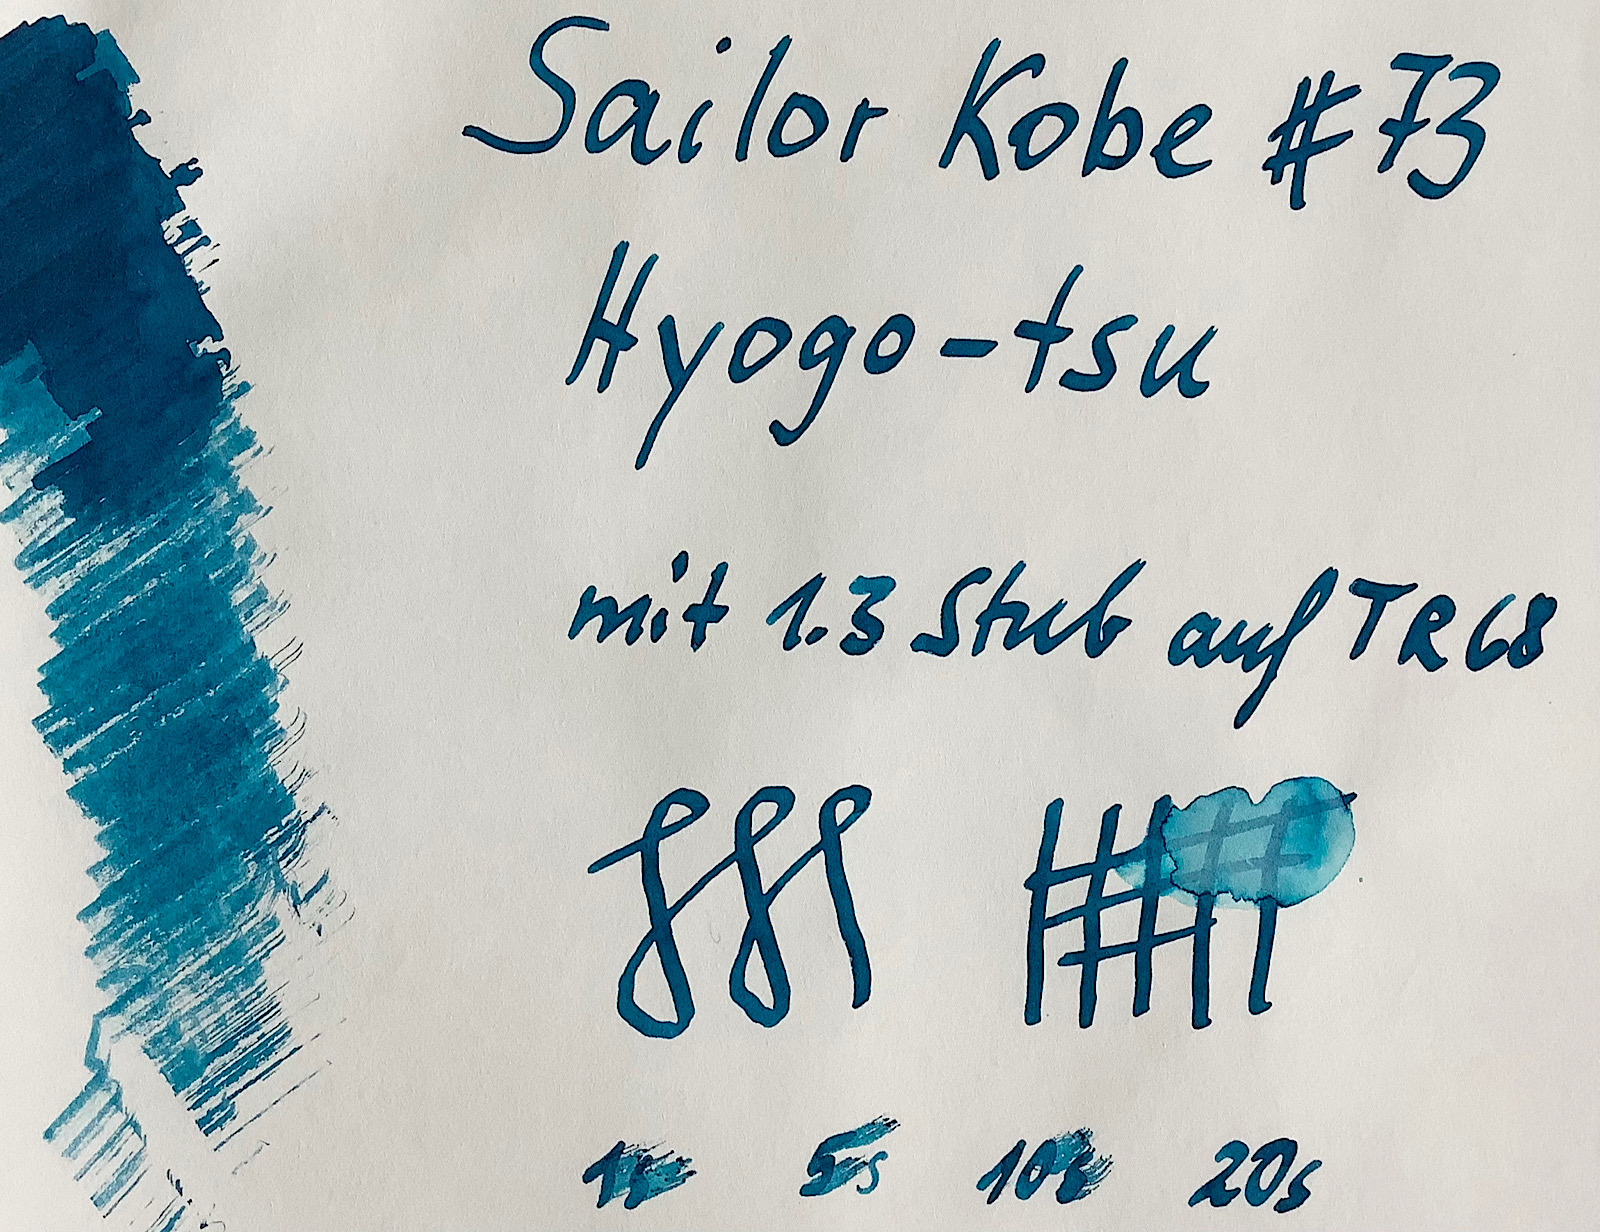 Sailor Kobe #73
Hyogo-tsu
mit 1.3 Stub auf TR68
1s 5s 10s 20s